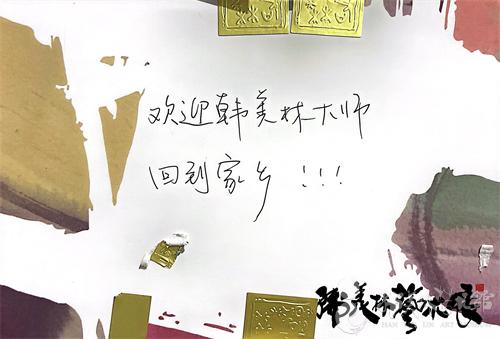 欢迎韩美林大师
回到家乡！！！
韩美林艺术展